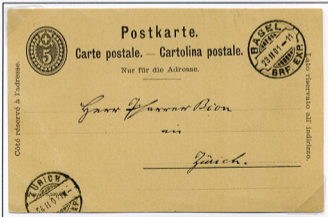 Postkarte.
Carte postale. — Cartolina postale.
Nur für die Adresse.
5
Côté réservé à l'adresse.
Lato riservato all'indirizzo.
BASEL
BRF. EXP.
Herr Pfarrer Bion
in
Zürich.
ZÜRICH